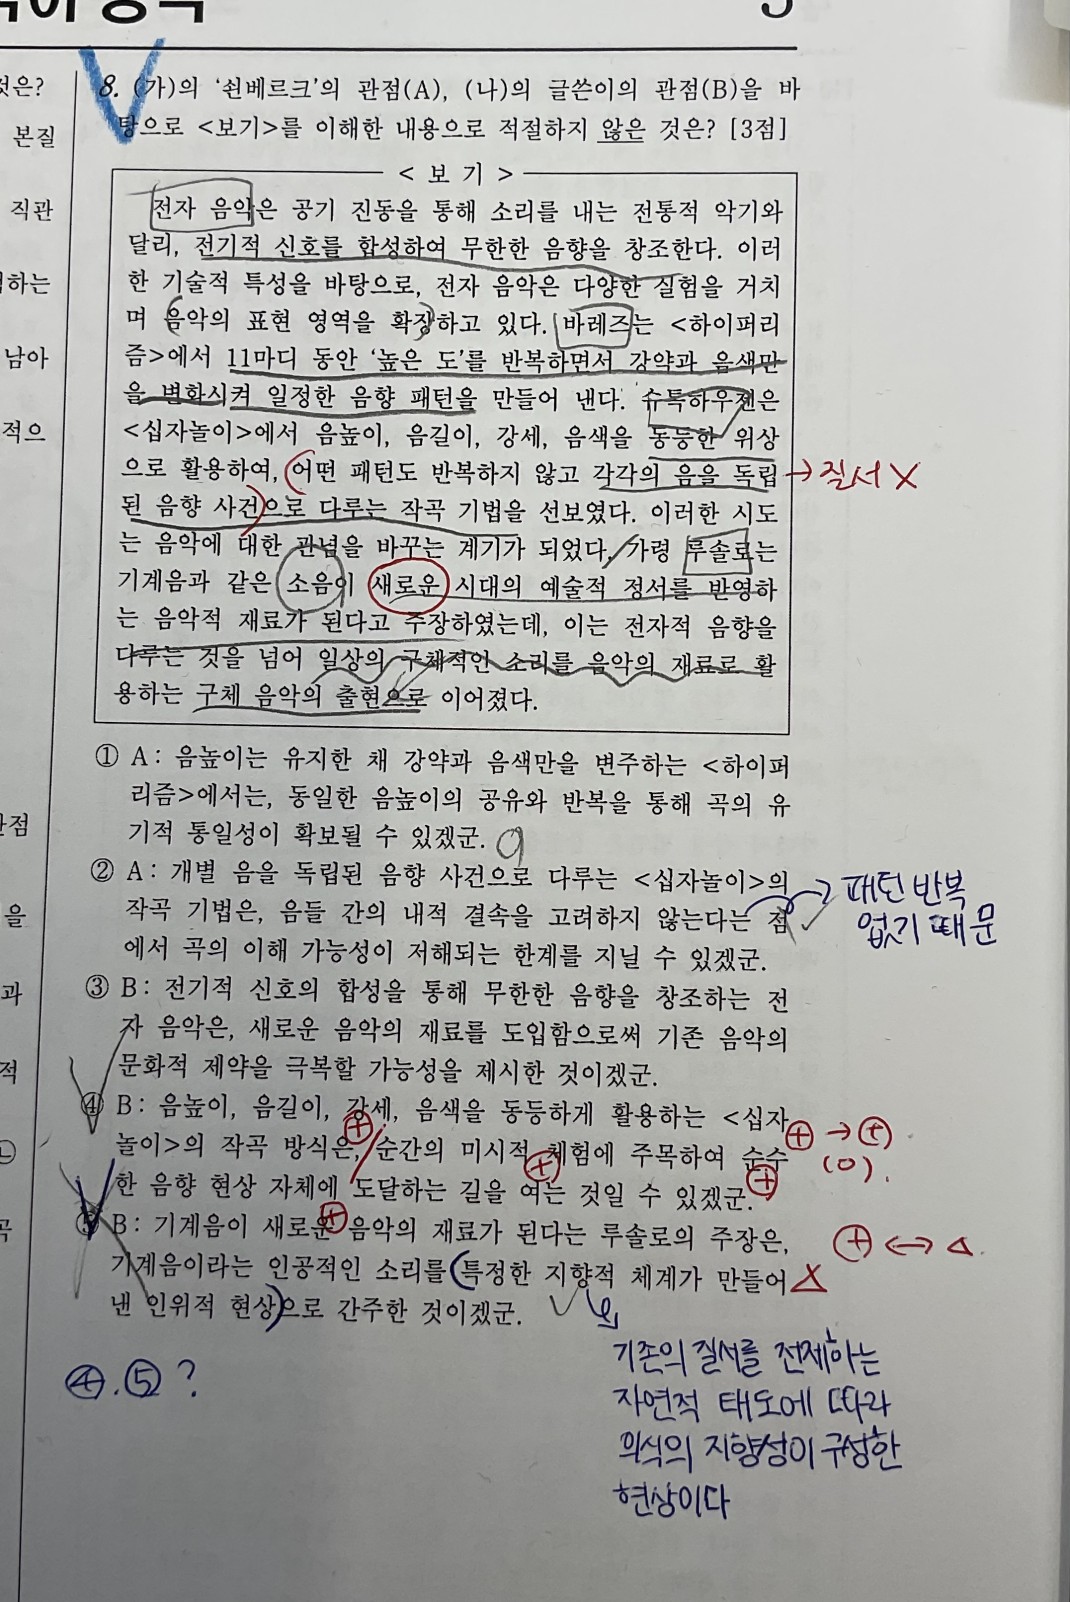 5
것은?
본질
직관
남아
적으
관점
을
과
적
8. (가)의 ‘쇤베르크’의 관점(A), (나)의 글쓴이의 관점(B)을 바
탕으로 <보기>를 이해한 내용으로 적절하지 않은 것은? [3점]
< 보 기 >
전자 음악은 공기 진동을 통해 소리를 내는 전통적 악기와
달리, 전기적 신호를 합성하여 무한한 음향을 창조한다. 이러
한 기술적 특성을 바탕으로, 전자 음악은 다양한 실험을 거치
며 음악의 표현 영역을 확장하고 있다. 바레즈는 <하이퍼리
즘>에서 11마디 동안 ‘높은 도’를 반복하면서 강약과 음색만
을 변화시켜 일정한 음향 패턴을 만들어 낸다. 슈톡하우젠은
<십자놀이>에서 음높이, 음길이, 강세, 음색을 동등한 위상
으로 활용하여, 어떤 패턴도 반복하지 않고 각각의 음을 독립 → 질서 X
된 음향 사건으로 다루는 작곡 기법을 선보였다. 이러한 시도
는 음악에 대한 관념을 바꾸는 계기가 되었다. 가령 루솔로는
기계음과 같은 소음이 새로운 시대의 예술적 정서를 반영하
는 음악적 재료가 된다고 주장하였는데, 이는 전자적 음향을
다루는 것을 넘어 일상의 구체적인 소리를 음악의 재료로 활
용하는 구체 음악의 출현으로 이어졌다.
① A: 음높이는 유지한 채 강약과 음색만을 변주하는 <하이퍼
리즘>에서는, 동일한 음높이의 공유와 반복을 통해 곡의 유
기적 통일성이 확보될 수 있겠군.
② A: 개별 음을 독립된 음향 사건으로 다루는 <십자놀이>의
작곡 기법은, 음들 간의 내적 결속을 고려하지 않는다는 점
에서 곡의 이해 가능성이 저해되는 한계를 지닐 수 있겠군.
패턴 반복
없기 때문
③ B: 전기적 신호의 합성을 통해 무한한 음향을 창조하는 전
자 음악은, 새로운 음악의 재료를 도입함으로써 기존 음악의
문화적 제약을 극복할 가능성을 제시한 것이겠군.
④ B: 음높이, 음길이, 강세, 음색을 동등하게 활용하는 <십자
놀이>의 작곡 방식은, 순간의 미시적 체험에 주목하여 순수
한 음향 현상 자체에 도달하는 길을 여는 것일 수 있겠군.
⊕ → ⊕
(O).
⑤ B: 기계음이 새로운 음악의 재료가 된다는 루솔로의 주장은,
기계음이라는 인공적인 소리를 특정한 지향적 체계가 만들어
낸 인위적 현상으로 간주한 것이겠군.
⊕ ↔ △.
기존의 질서를 전제하는
자연적 태도에 따라
의식의 지향성이 구성한
현상이다
④.⑤ ?